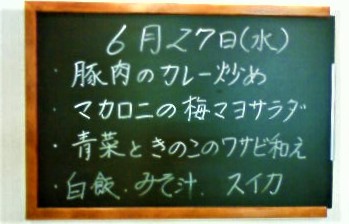 6月27日(水)
・豚肉のカレー炒め
・マカロニの梅マヨサラダ
・青菜ときのこのワサビ和え
・白飯．みそ汁．スイカ